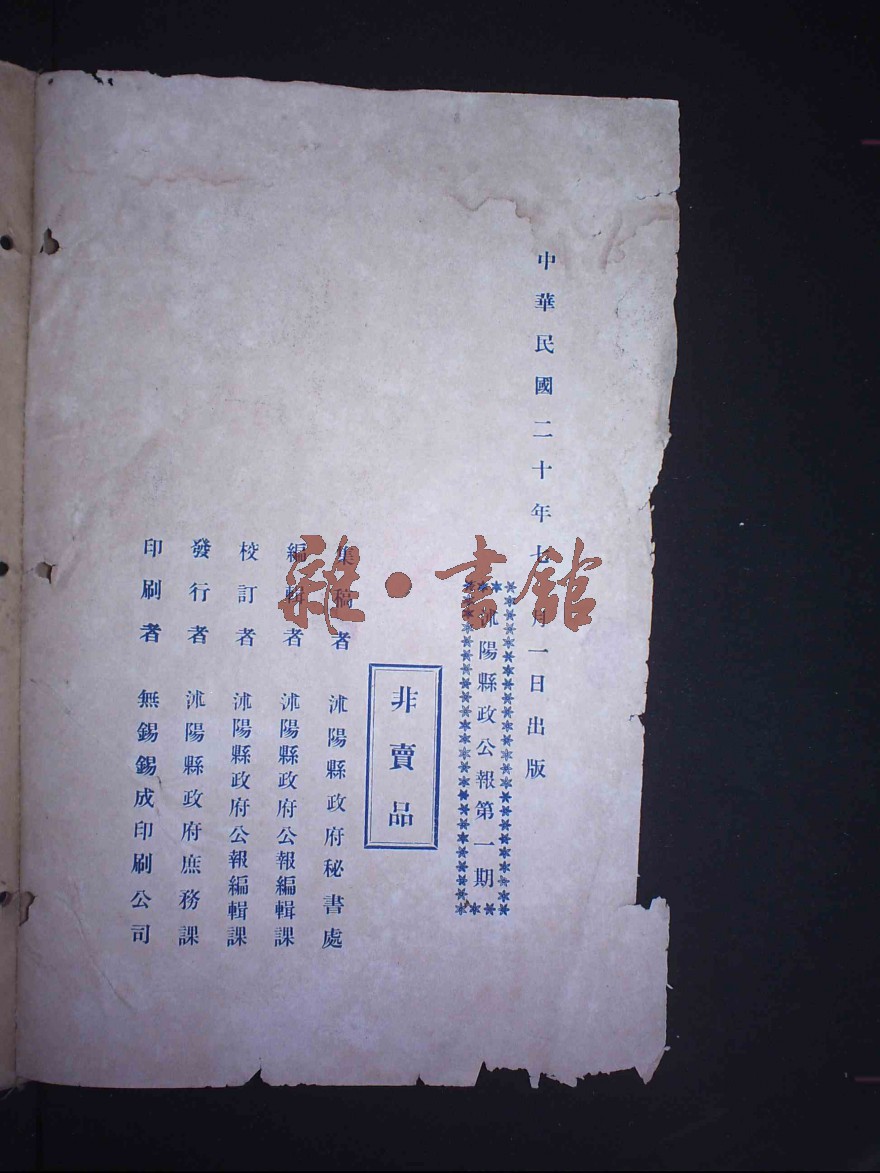 中華民國二十年七月一日出版
沭陽縣政公報第一期
非賣品
集稿者 沭陽縣政府秘書處
編輯者 沭陽縣政府公報編輯課
校訂者 沭陽縣政府公報編輯課
發行者 沭陽縣政府庶務課
印刷者 無錫錫成印刷公司
雜·書館